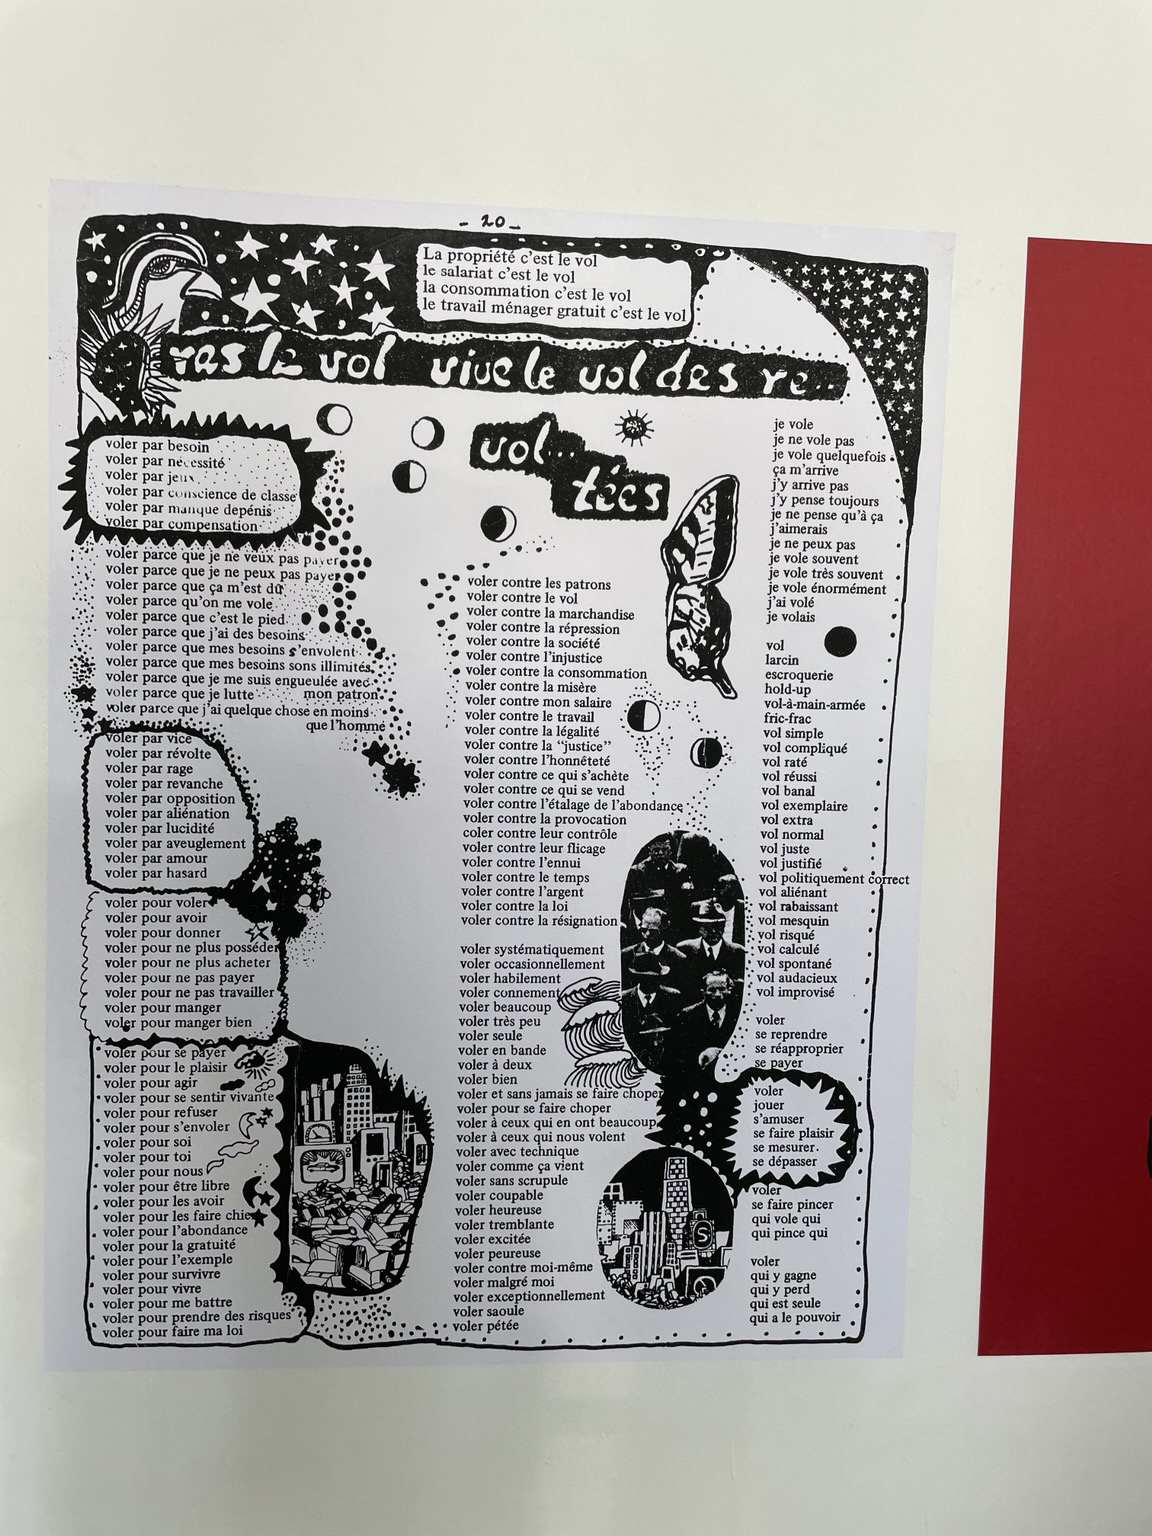 - 20 -
La propriété c'est le vol
le salariat c'est le vol
la consommation c'est le vol
le travail ménager gratuit c'est le vol
ras le vol vive le vol des re..
vol.. tées
voler par besoin
voler par nécessité
voler par jeux
voler par conscience de classe
voler par manque depénis
voler par compensation
voler parce que je ne veux pas payer
voler parce que je ne peux pas payer
voler parce que ça m'est dû
voler parce qu'on me vole
voler parce que c'est le pied
voler parce que j'ai des besoins
voler parce que mes besoins s'envolent
voler parce que mes besoins sons illimités
voler parce que je me suis engueulée avec
mon patron
voler parce que je lutte
voler parce que j'ai quelque chose en moins
que l'homme
voler par vice
voler par révolte
voler par rage
voler par revanche
voler par opposition
voler par aliénation
voler par lucidité
voler par aveuglement
voler par amour
voler par hasard
voler pour voler
voler pour avoir
voler pour donner
voler pour ne plus posséder
voler pour ne plus acheter
voler pour ne pas payer
voler pour ne pas travailler
voler pour manger
voler pour manger bien
voler pour se payer
voler pour le plaisir
voler pour agir
voler pour se sentir vivante
voler pour refuser
voler pour s'envoler
voler pour soi
voler pour toi
voler pour nous
voler pour être libre
voler pour les avoir
voler pour les faire chier
voler pour l'abondance
voler pour la gratuité
voler pour l'exemple
voler pour survivre
voler pour vivre
voler pour me battre
voler pour prendre des risques
voler pour faire ma loi
voler contre les patrons
voler contre le vol
voler contre la marchandise
voler contre la répression
voler contre la société
voler contre l'injustice
voler contre la consommation
voler contre la misère
voler contre mon salaire
voler contre le travail
voler contre la légalité
voler contre la "justice"
voler contre l'honnêteté
voler contre ce qui s'achète
voler contre ce qui se vend
voler contre l'étalage de l'abondance
voler contre la provocation
coler contre leur contrôle
voler contre leur flicage
voler contre l'ennui
voler contre le temps
voler contre l'argent
voler contre la loi
voler contre la résignation
voler systématiquement
voler occasionnellement
voler habilement
voler connement
voler beaucoup
voler très peu
voler seule
voler en bande
voler à deux
voler bien
voler et sans jamais se faire choper
voler pour se faire choper
voler à ceux qui en ont beaucoup
voler à ceux qui nous volent
voler avec technique
voler comme ça vient
voler sans scrupule
voler coupable
voler heureuse
voler tremblante
voler excitée
voler peureuse
voler contre moi-même
voler malgré moi
voler exceptionnellement
voler saoule
voler pétée
je vole
je ne vole pas
je vole quelquefois
ça m'arrive
j'y arrive pas
j'y pense toujours
je ne pense qu'à ça
j'aimerais
je ne peux pas
je vole souvent
je vole très souvent
je vole énormément
j'ai volé
je volais
vol
larcin
escroquerie
hold-up
vol-à-main-armée
fric-frac
vol simple
vol compliqué
vol raté
vol réussi
vol banal
vol exemplaire
vol extra
vol normal
vol juste
vol justifié
vol politiquement correct
vol aliénant
vol rabaissant
vol mesquin
vol risqué
vol calculé
vol spontané
vol audacieux
vol improvisé
voler
se reprendre
se réapproprier
se payer
voler
jouer
s'amuser
se faire plaisir
se mesurer.
se dépasser
voler
se faire pincer
qui vole qui
qui pince qui
voler
qui y gagne
qui y perd
qui est seule
qui a le pouvoir
S